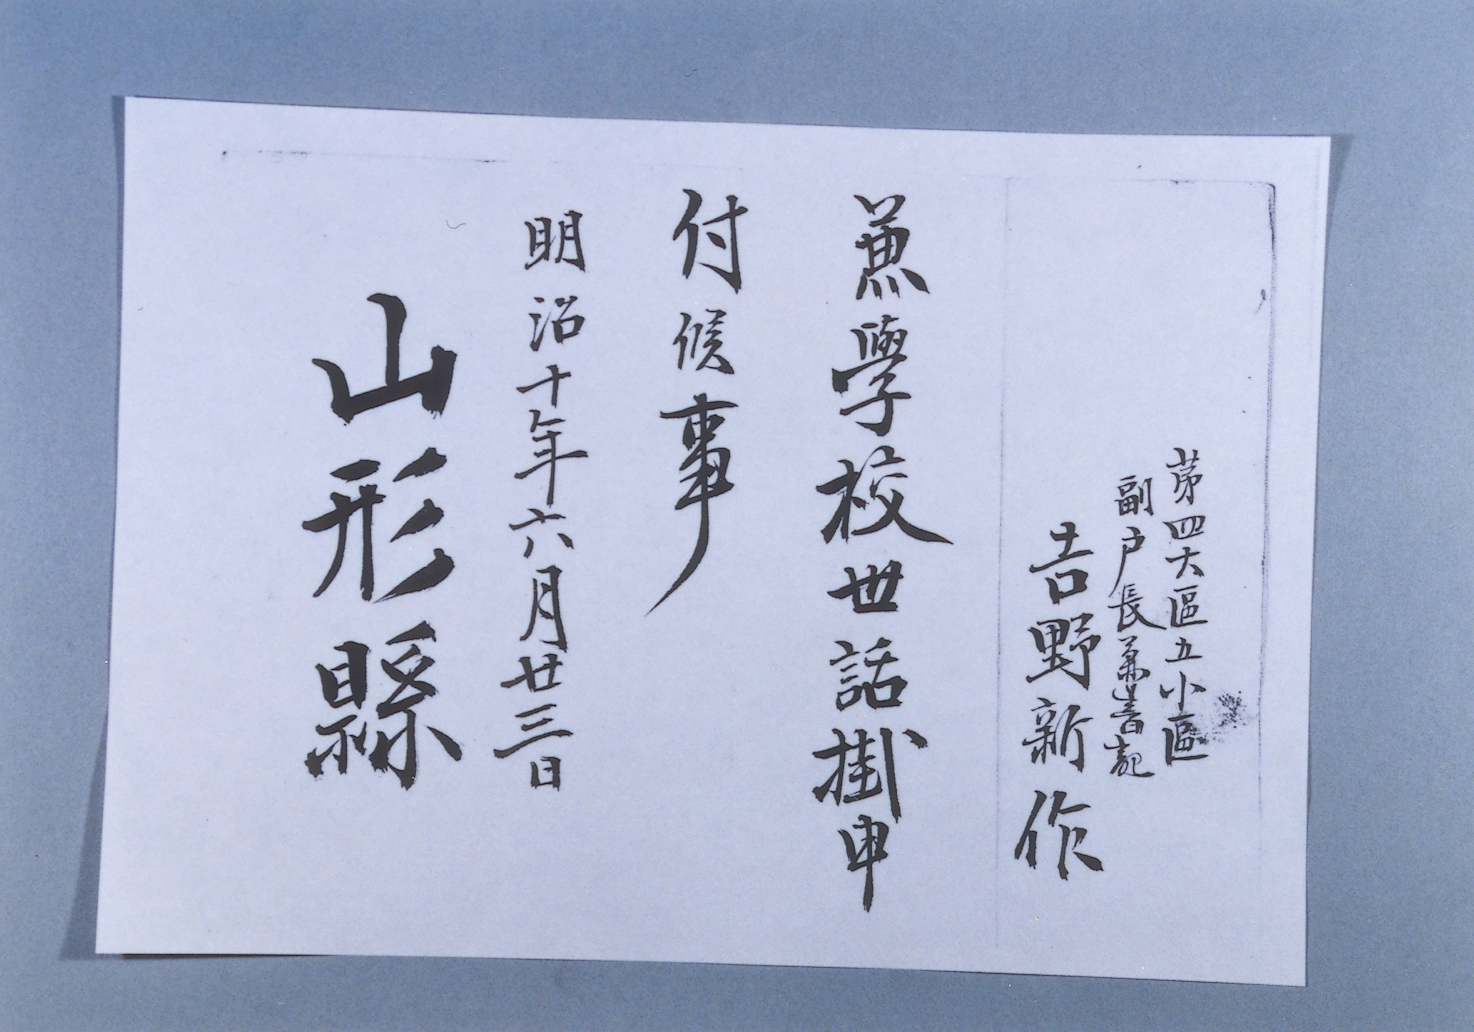 第四大區五小區
副戸長兼書記
吉野新作
兼學校世話掛申
付候事
明治十年六月廿三日
山形縣